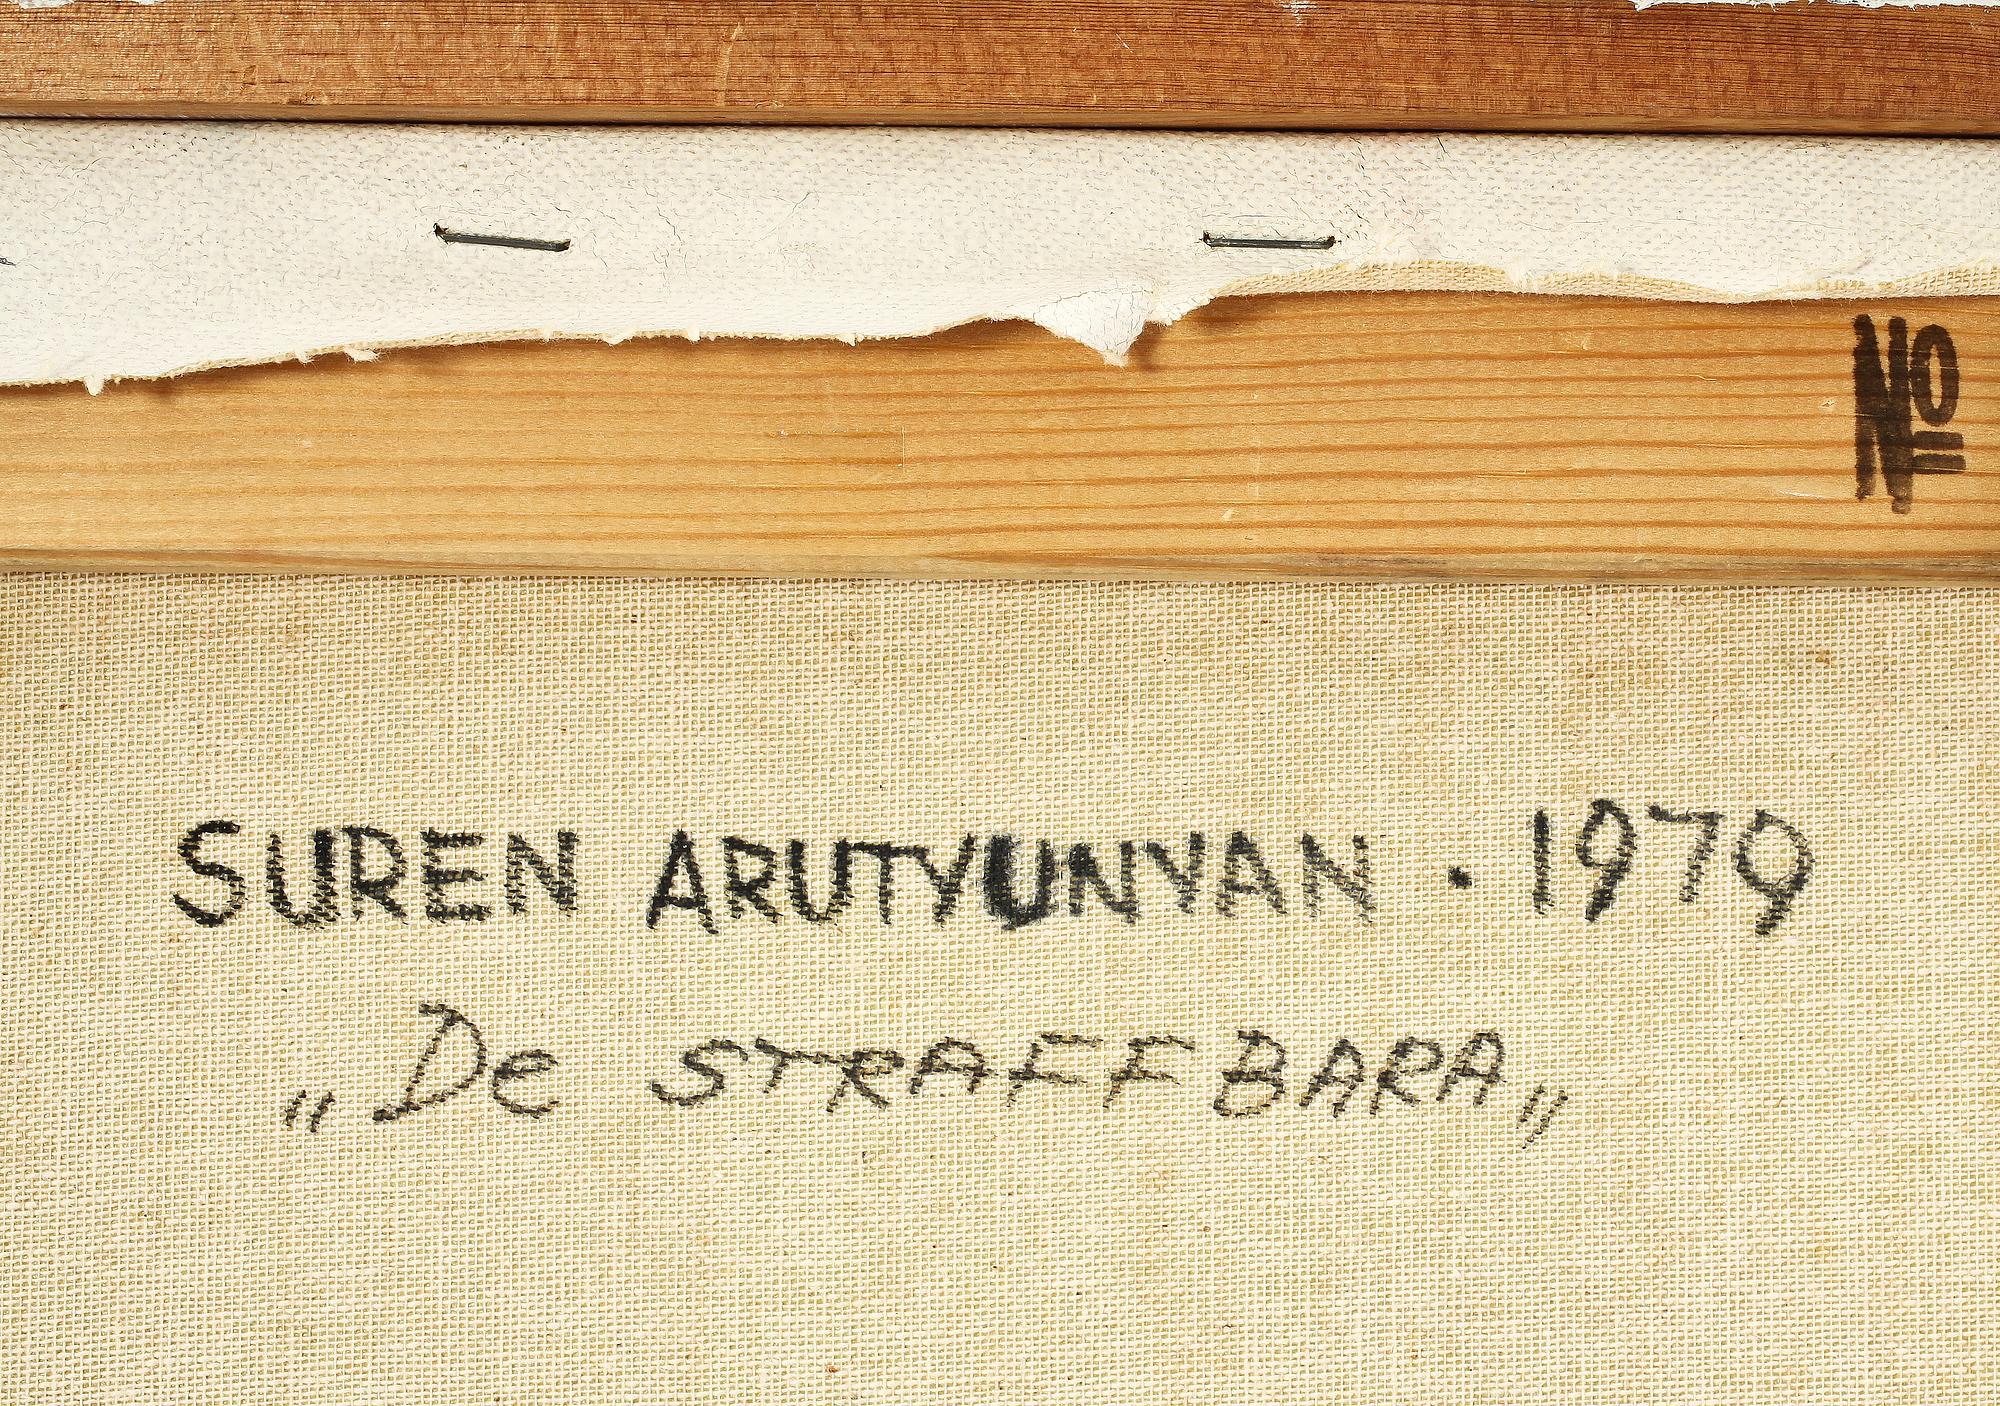 No
SUREN ARUTYUNYAN · 1979
„De STRAFFBARA„